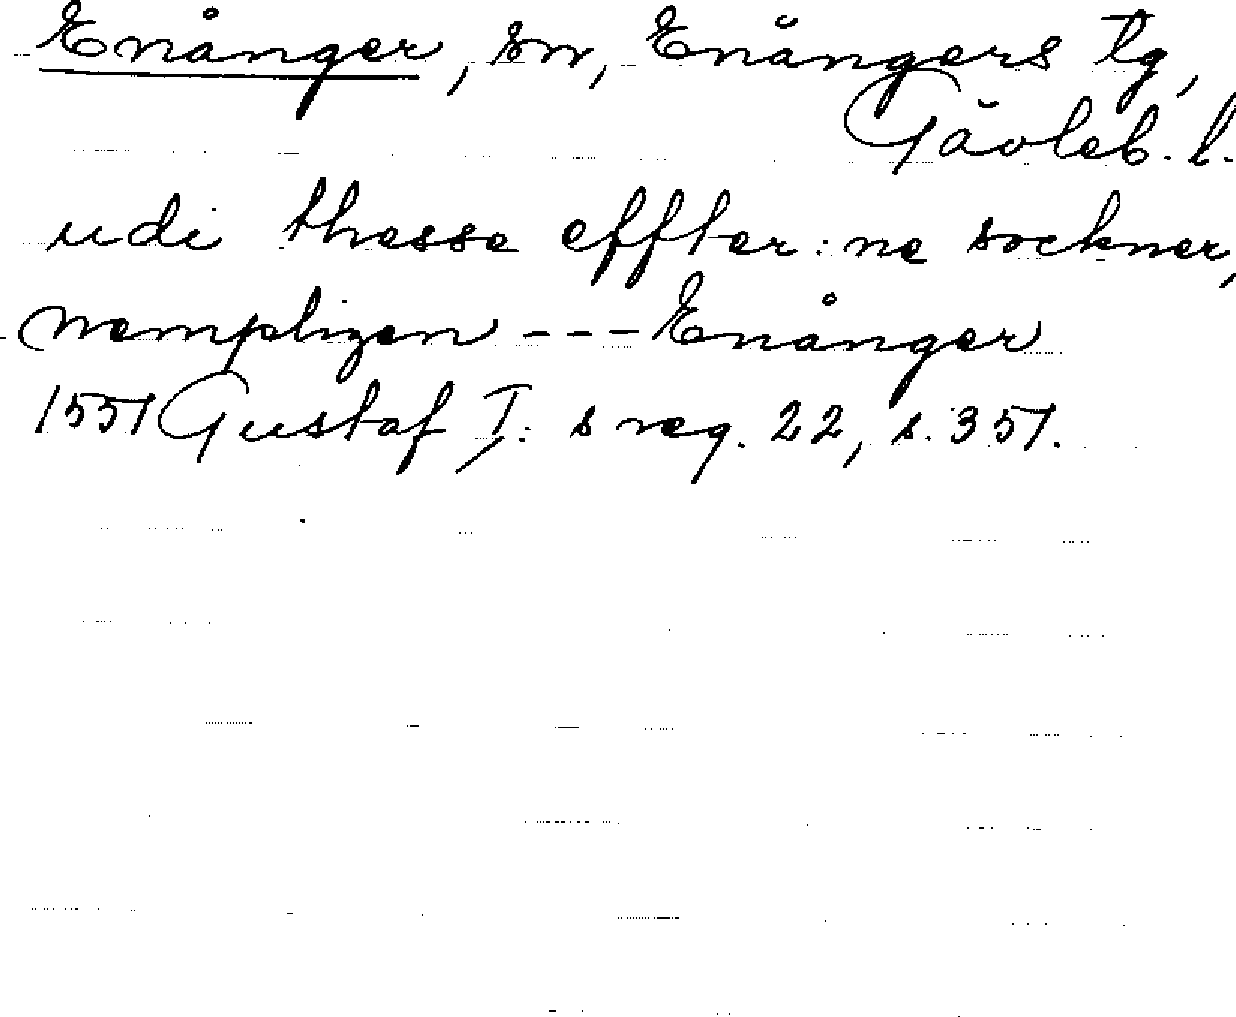 Enånger, sn, Enångers tg,
Gävleb. l.
udi thesse effter:ne sockner,
Nempligen --- Enånger
1551 Gustaf I:s reg. 22, s. 351.